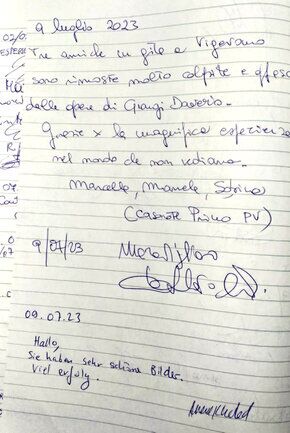 9 luglio 2023
Tre amiche in gita a Vigevano
sono rimaste molto colpite e
dalle opere di Giangi Daverio.
Grazie x la magnifica esperienza
nel mondo che non vediamo.
Marcella, Manuela, Sabrina
(Casorate Primo PV)
9/07/23
09.07.23
Hallo,
Sie haben sehr schöne Bilder.
Viel erfolg.